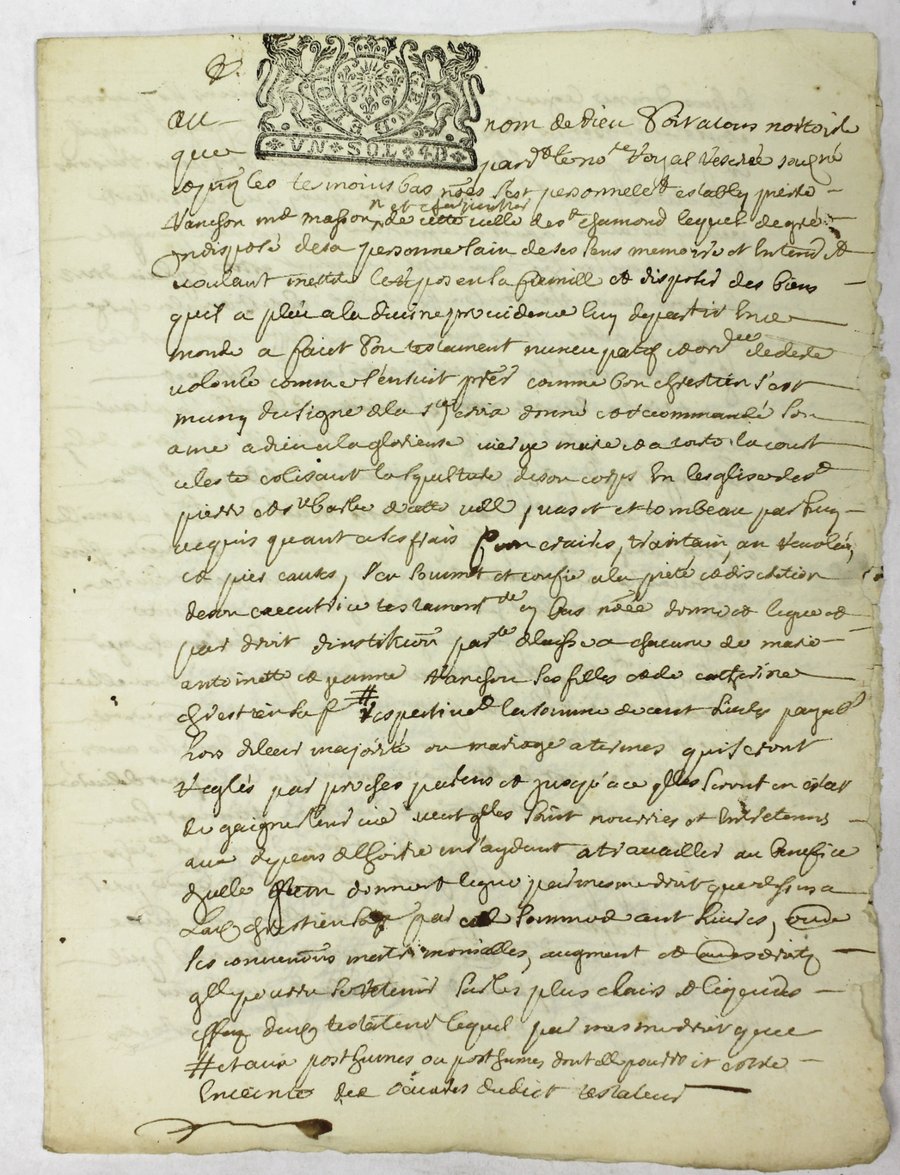 GENER DE LION
VN SOL 4D
Au nom de dieu soit a tous notoire
que pard^t le no^re Royal reservé soigné
et presents les tesmoins bas només s'est personnelem^t estably pierre
Vanchon m^e masson et charpentier de cette ville de s^t chamond lequel de gré
Indisposé de sa personne sain de ses sens memoire et entend^t
voulant mettre le repos en sa famille et disposer des biens
quil a pleu a la divine providence luy departir en ce
monde a faict son testament nuncupatif et ord^ce de dere
volonté comme s'ensuit pr^er comme bon chrestien s'est
muny du signe de la s^te croix donné et recommandé son
ame a dieu a la glorieuse vierge marie et a toute la court
celeste eslisant la sepulture de son corps en lesglise de s^t
pierre et s^te barbe de cette ville et tombeau par luy
acquis quant a ses frais funeraires, trantain, an revolu,
et pies causes, s'en soumet et confie a la pieté et discretion
de son executrice testament^re cy bas nomée donne et legue et
par droit d'institution part^re delaisse a chacune de marie
antoinette et jeanne Vanchon ses filles et de catherine
chrestien sa f^e # respectivem^t la somme de cent livres payable
lors de leur majorité ou mariage a termes qui seront
reglés par proches parens et jusqu'a ce qlles seront en estat
de gaigner leur vie veut qlles soint nourries et entretenues
aux depens de lhoirie en s'aydant a travailler au benefice
dicelle Item donne et legue par mesme droit que dessus a
lad chrestien sa f^e la somme de cent livres, outre
ses conventions matrimonialles, augment et autres droitz
qlle pourra retenir sur les plus clairs et liquides
effaiz dud testateur lequel par mesme droit que
# et aux posthumes ou posthumes dont elle pourroit estre
Enceinte des oeuvres dudict testateur